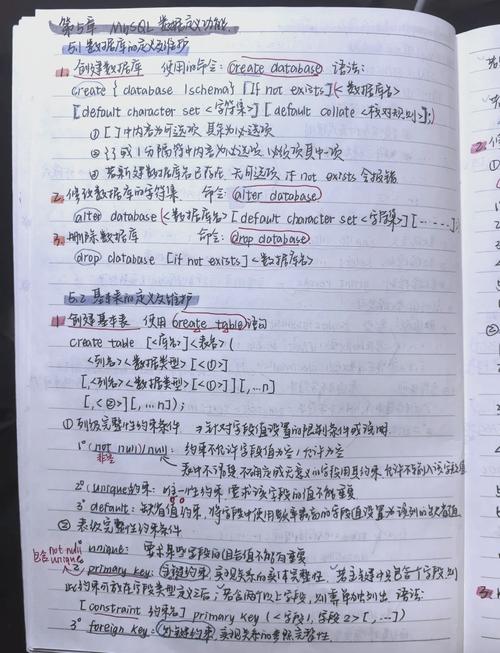 第5章 MySQL 数据定义功能
5.1 数据库的定义及维护
1. 创建数据库 使用的命令: create database 语法:
create { database | schema } [If not exists] <数据库名>
[default character set <字符集>] [default collate <校对规则>];
① [ ] 中内容为可选项, 其余为必选项
② { } 或 | 分隔符中内容为必选项, 必须项其中一项
③ 若新建数据库名已存在, 无可选项 if not exists 会报错
2. 修改数据库的字符集 命令: alter database
alter database <数据库名> [default character set <字符集>] [......];
3. 删除数据库 命令: drop database
drop database [if not exists] <数据库名>
5.2 基本表的定义及维护
1. 创建基本表 使用 create table 语句
create table [<库名>] <表名> (
<列名> <数据类型> [<①>]
[, <列名> <数据类型> [<①>]] [,...n]
[, <②>] [,...n]);
① 列级完整性约束条件 → 针对字段值设置的限制条件
1° (not null)/null: 约束不允许字段值为空/允许为空
非空
2° (unique约束: 唯一性约束, 要求该字段的值不能重复
3° default: 缺省值约束, 将字段中使用频率最高的字段值设置为该列的缺省值
② 表级完整性约束条件
1° unique: 要求某些字段的值不能有重复
包含 not null unique
2° primary key: 主键约束, 实现关系的实体完整性, 若主键中只包含个字段, 则
此约束可放在字段类型定义后; 若含两个以上字段, 则要单独列出 语法:
[constraint 约束名] primary key (<字段1, 字段2>[,...])
3° foreign key: 外键约束, 实现关系的参照完整性.